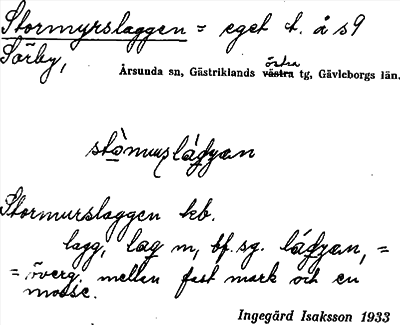 Stormyrslaggen = eget t. å s9
Sörby,
östra
Årsunda sn, Gästriklands västra tg, Gävleborgs län.
Stormurslaggen keb.
lagg, lag m, bf. sg. =
= överg. mellan fast mark och en
mosse.
Ingegärd Isaksson 1933